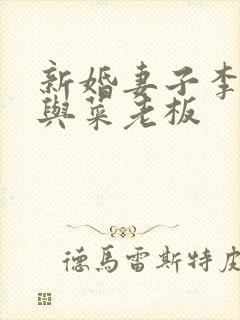 新婚妻子李
與菜老板
德馬雷斯特皮